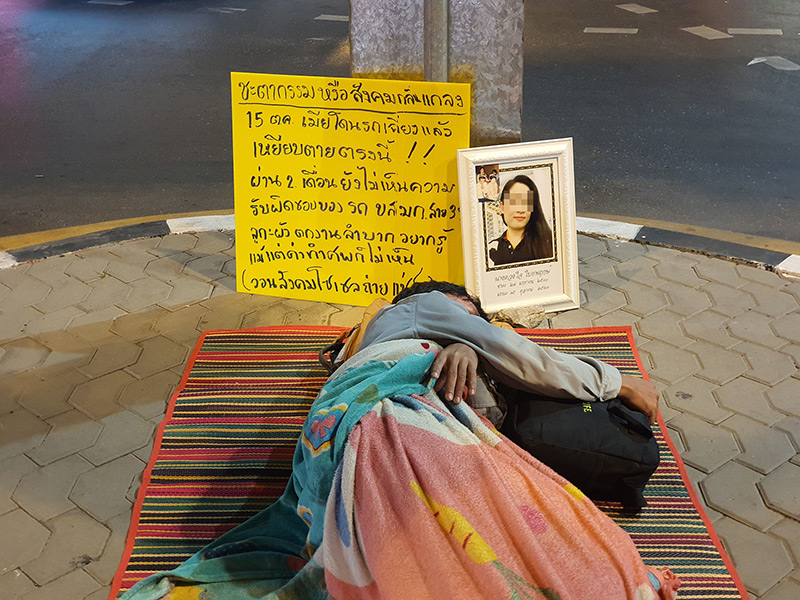 ชะตากรรม หรือ สังคมกลั่นแกล้ง
15 ตค. เมียโดนรถเฉี่ยวแล้ว
เหยียบตายตรงนี้ !!
ผ่าน 2 เดือน ยังไม่เห็นความ
รับผิดชอบของ รถ ขสมก. สาย
ลูกะผัว ตกงาน ลำบาก อยากรู้
แม้แต่ค่าทำศพก็ไม่เห็น
(วอนสังคมโซเชลถ่ายแชร์
LIFE